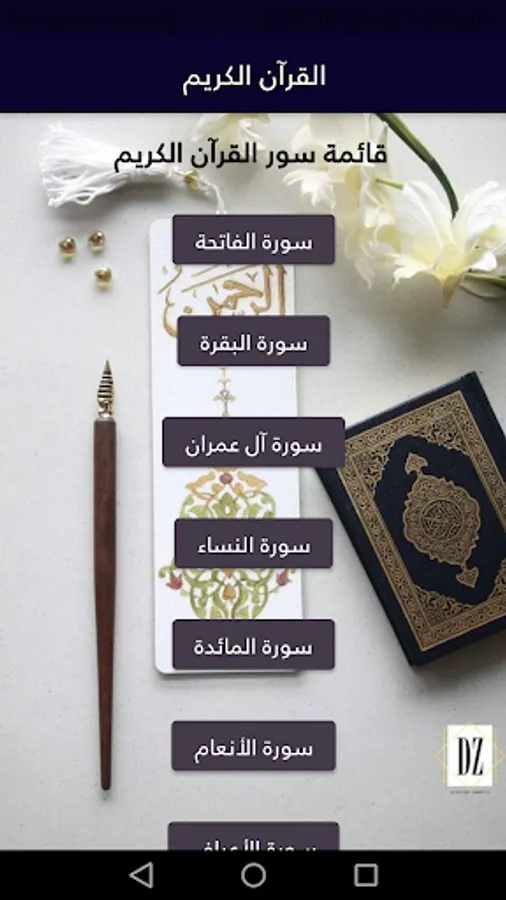 القرآن الكريم
قائمة سور القرآن الكريم
سورة الفاتحة
الرحمن
سورة البقرة
سورة آل عمران
سورة النساء
سورة المائدة
سورة الأنعام
DZ
سورة الأعراف